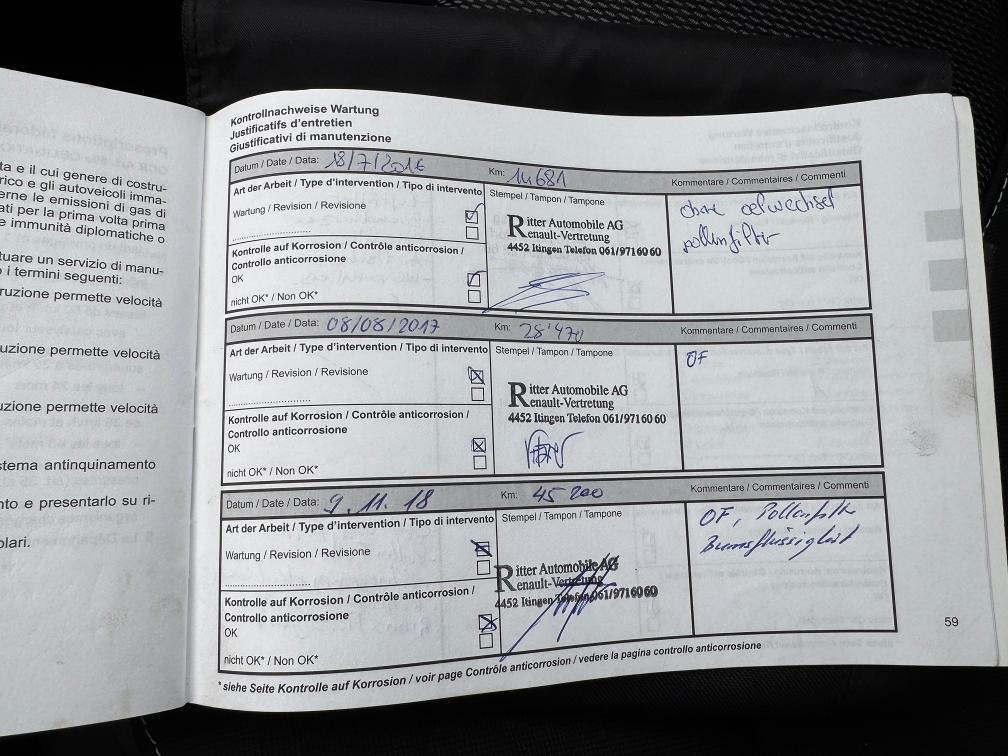 ta e il cui genere di costru-
rico e gli autoveicoli imma-
erne le emissioni di gas di
ati per la prima volta prima
e immunità diplomatiche o
tuare un servizio di manu-
o i termini seguenti:
ruzione permette velocità
uzione permette velocità
uzione permette velocità
stema antinquinamento
nto e presentarlo su ri-
olari.
Kontrollnachweise Wartung
Justificatifs d'entretien
Giustificativi di manutenzione
Datum / Date / Data: 18/7/2016 Km: 14681 Kommentare / Commentaires / Commenti
Art der Arbeit / Type d'intervention / Tipo di intervento Stempel / Tampon / Tampone ohne oelwechsel
Wartung / Revision / Revisione Ritter Automobile AG pollenfilter
Renault-Vertretung
Kontrolle auf Korrosion / Contrôle anticorrosion / 4452 Itingen Telefon 061/971 60 60
Controllo anticorrosione
OK
nicht OK* / Non OK*
Datum / Date / Data: 08/08/2017 Km: 28'470 Kommentare / Commentaires / Commenti
Art der Arbeit / Type d'intervention / Tipo di intervento Stempel / Tampon / Tampone OF
Wartung / Revision / Revisione Ritter Automobile AG
Renault-Vertretung
Kontrolle auf Korrosion / Contrôle anticorrosion / 4452 Itingen Telefon 061/971 60 60
Controllo anticorrosione
OK
nicht OK* / Non OK*
Datum / Date / Data: 9.11.18 Km: 45 200 Kommentare / Commentaires / Commenti
Art der Arbeit / Type d'intervention / Tipo di intervento Stempel / Tampon / Tampone OF,
Wartung / Revision / Revisione Ritter Automobile AG
Renault-Vertretung
Kontrolle auf Korrosion / Contrôle anticorrosion / 4452 Itingen Telefon 061/971 60 60
Controllo anticorrosione
OK
nicht OK* / Non OK*
59
* siehe Seite Kontrolle auf Korrosion / voir page Contrôle anticorrosion / vedere la pagina controllo anticorrosione